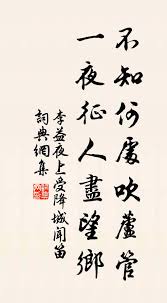 不知何處吹蘆管
一夜征人盡望鄉
李益夜上受降城聞笛
詞典網集